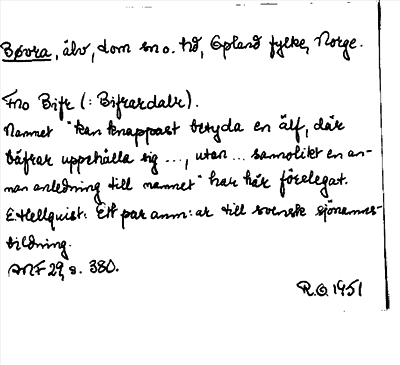 Bøvra, älv, Lom sn o. hd, Opland fylke, Norge.
Fno Bifr (: Bifrardalr).
Namnet "kan knappast betyda en älf, där
bäfrar uppehålla sig ..., utan ... sannolikt en an-
nan anledning till namnet" har här förelegat.
E Hellquist: Ett par anm:ar till svenska sjönamns-
bildning.
ANF 29, s. 380.
R.O. 1951